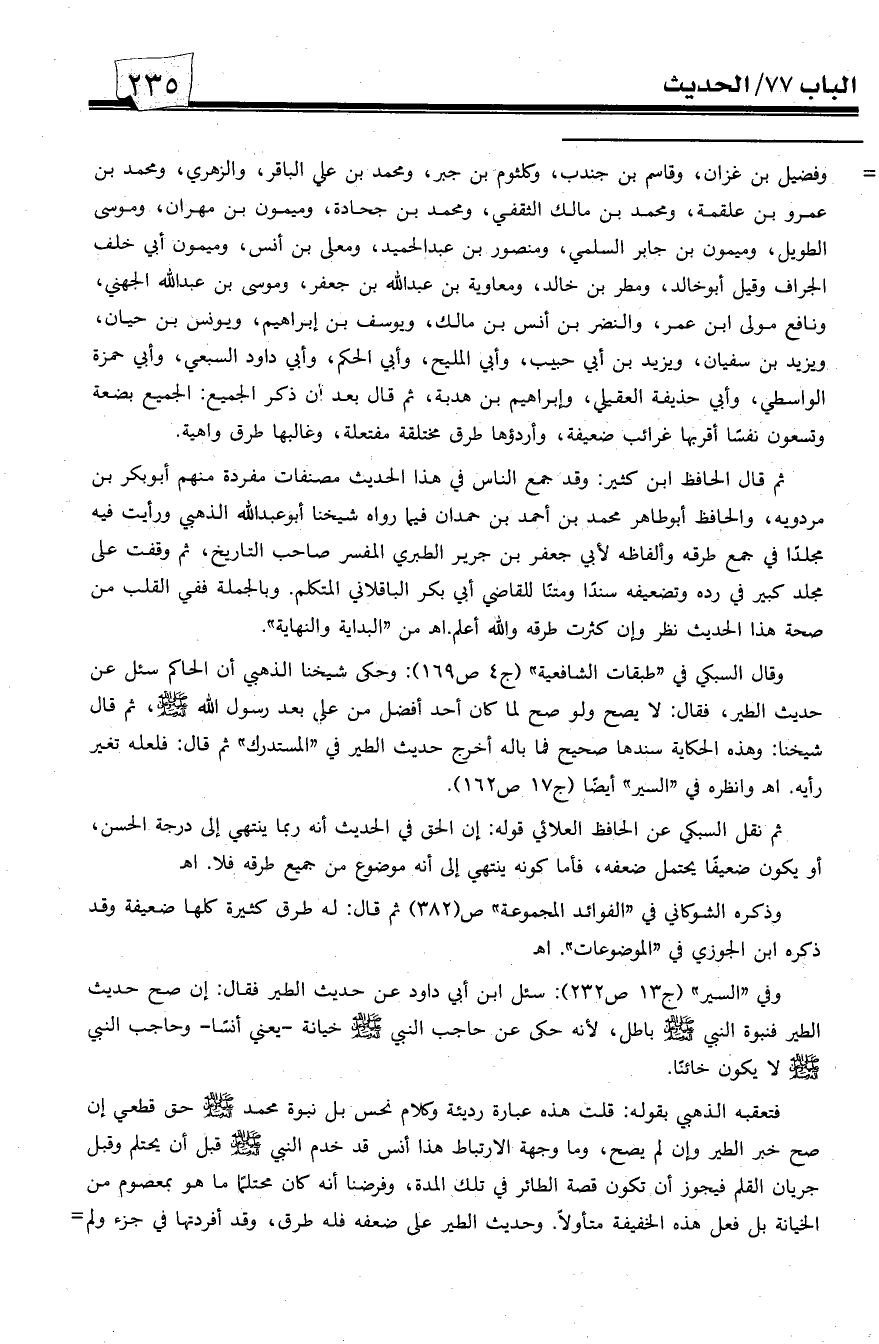 الباب ٧٧/ الحديث
٢٣٥
= وفضيل بن غزان، وقاسم بن جندب، وكلثوم بن جبر، ومحمد بن علي الباقر، والزهري، ومحمد بن
عمرو بن علقمة، ومحمد بن مالك الثقفي، ومحمد بن جحادة، وميمون بن مهران، وموسى
الطويل، وميمون بن جابر السلمي، ومنصور بن عبدالحميد، ومعلى بن أنس، وميمون أبي خلف
الجراف وقيل أبوخالد، ومطر بن خالد، ومعاوية بن عبدالله بن جعفر، وموسى بن عبدالله الجهني،
ونافع مولى ابن عمر، والنضر بن أنس بن مالك، ويوسف بن إبراهيم، ويونس بن حيان،
ويزيد بن سفيان، ويزيد بن أبي حبيب، وأبي المليح، وأبي الحكم، وأبي داود السبعي، وأبي حمزة
الواسطي، وأبي حذيفة العقيلي، وإبراهيم بن هدبة، ثم قال بعد أن ذكر الجميع: الجميع بضعة
وتسعون نفسًا أقربها غرائب ضعيفة، وأردؤها طرق مختلقة مفتعلة، وغالبها طرق واهية.
ثم قال الحافظ ابن كثير: وقد جمع الناس في هذا الحديث مصنفات مفردة منهم أبوبكر بن
مردويه، والحافظ أبوطاهر محمد بن أحمد بن حمدان فيما رواه شيخنا أبوعبدالله الذهبي ورأيت فيه
مجلدًا في جمع طرقه وألفاظه لأبي جعفر بن جرير الطبري المفسر صاحب التاريخ، ثم وقفت على
مجلد كبير في رده وتضعيفه سندًا ومتنًا للقاضي أبي بكر الباقلاني المتكلم. وبالجملة ففي القلب من
صحة هذا الحديث نظر وإن كثرت طرقه والله أعلم.اهـ من "البداية والنهاية".
وقال السبكي في "طبقات الشافعية" (ج٤ ص١٦٩): وحكى شيخنا الذهبي أن الحاكم سئل عن
حديث الطير، فقال: لا يصح ولو صح لما كان أحد أفضل من علي بعد رسول الله ﷺ، ثم قال
شيخنا: وهذه الحكاية سندها صحيح فما باله أخرج حديث الطير في "المستدرك" ثم قال: فلعله تغير
رأيه. اهـ وانظره في "السير" أيضًا (ج١٧ ص١٦٢).
ثم نقل السبكي عن الحافظ العلائي قوله: إن الحق في الحديث أنه ربما ينتهي إلى درجة الحسن،
أو يكون ضعيفًا يحتمل ضعفه، فأما كونه ينتهي إلى أنه موضوع من جميع طرقه فلا. اهـ
وذكره الشوكاني في "الفوائد المجموعة" ص(٣٨٢) ثم قال: له طرق كثيرة كلها ضعيفة وقد
ذكره ابن الجوزي في "الموضوعات". اهـ
وفي "السير" (ج١٣ ص٢٣٢): سئل ابن أبي داود عن حديث الطير فقال: إن صح حديث
الطير فنبوة النبي ﷺ باطل، لأنه حكى عن حاجب النبي ﷺ خيانة -يعني أنسًا- وحاجب النبي
ﷺ لا يكون خائنًا.
فتعقبه الذهبي بقوله: قلت هذه عبارة رديئة وكلام نحس بل نبوة محمد ﷺ حق قطعي إن
صح خبر الطير وإن لم يصح، وما وجهة الارتباط هذا أنس قد خدم النبي ﷺ قبل أن يحتلم وقبل
جريان القلم فيجوز أن تكون قصة الطائر في تلك المدة، وفرضنا أنه كان محتلمًا ما هو بمعصوم من
الخيانة بل فعل هذه الخفيفة متأولاً. وحديث الطير على ضعفه فله طرق، وقد أفردتها في جزء ولم =